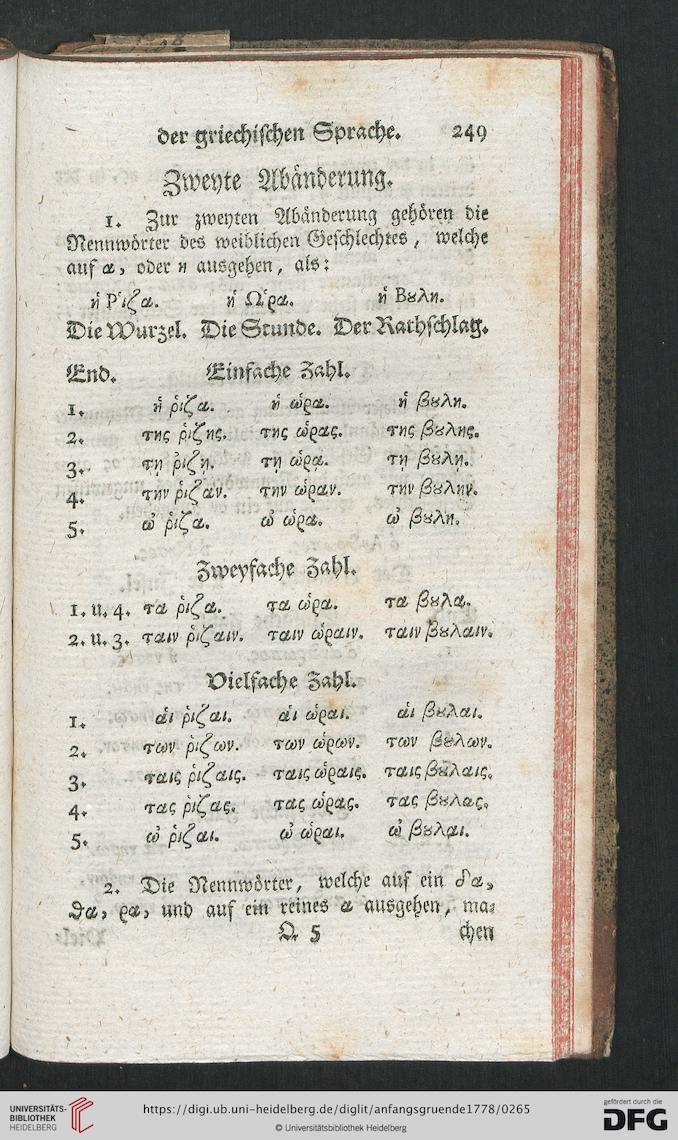 der griechischen Sprache. 249
Zweyte Abänderung.
1. Zur zweyten Abänderung gehören die
Nennwörter des weiblichen Geschlechtes, welche
auf α, oder η ausgehen, als:
ἡ Ῥίζα. ἡ Ὥρα. ἡ Βȣλη.
Die Wurzel. Die Stunde. Der Rathschlag.
End. Einfache Zahl.
1. ἡ ῥιζα. ἡ ὡρα. ἡ βȣλη.
2. της ῥιζης. της ὡρας. της βȣλης.
3. τῃ ῥιζῃ. τῃ ὡρᾳ. τῃ βȣλῃ.
4. την ῥιζαν. την ὡραν. την βȣλην.
5. ὠ ῥιζα. ὠ ὡρα. ὠ βȣλη.
Zweyfache Zahl.
1. u. 4. τα ῥιζα. τα ὡρα. τα βȣλα.
2. u. 3. ταιν ῥιζαιν. ταιν ὡραιν. ταιν βȣλαιν.
Vielfache Zahl.
1. ἁι ῥιζαι. ἁι ὡραι. ἁι βȣλαι.
2. των ῥιζων. των ὡρων. των βȣλων.
3. ταις ῥιζαις. ταις ὡραις. ταις βȣλαις.
4. τας ῥιζας. τας ὡρας. τας βȣλας.
5. ὠ ῥιζαι. ὠ ὡραι. ὠ βȣλαι.
2. Die Nennwörter, welche auf ein δα,
θα, ρα, und auf ein reines α ausgehen, ma-
Q 5 chen
UNIVERSITÄTS-
BIBLIOTHEK
HEIDELBERG
https://digi.ub.uni-heidelberg.de/diglit/anfangsgruende1778/0265
© Universitätsbibliothek Heidelberg
gefördert durch die
DFG